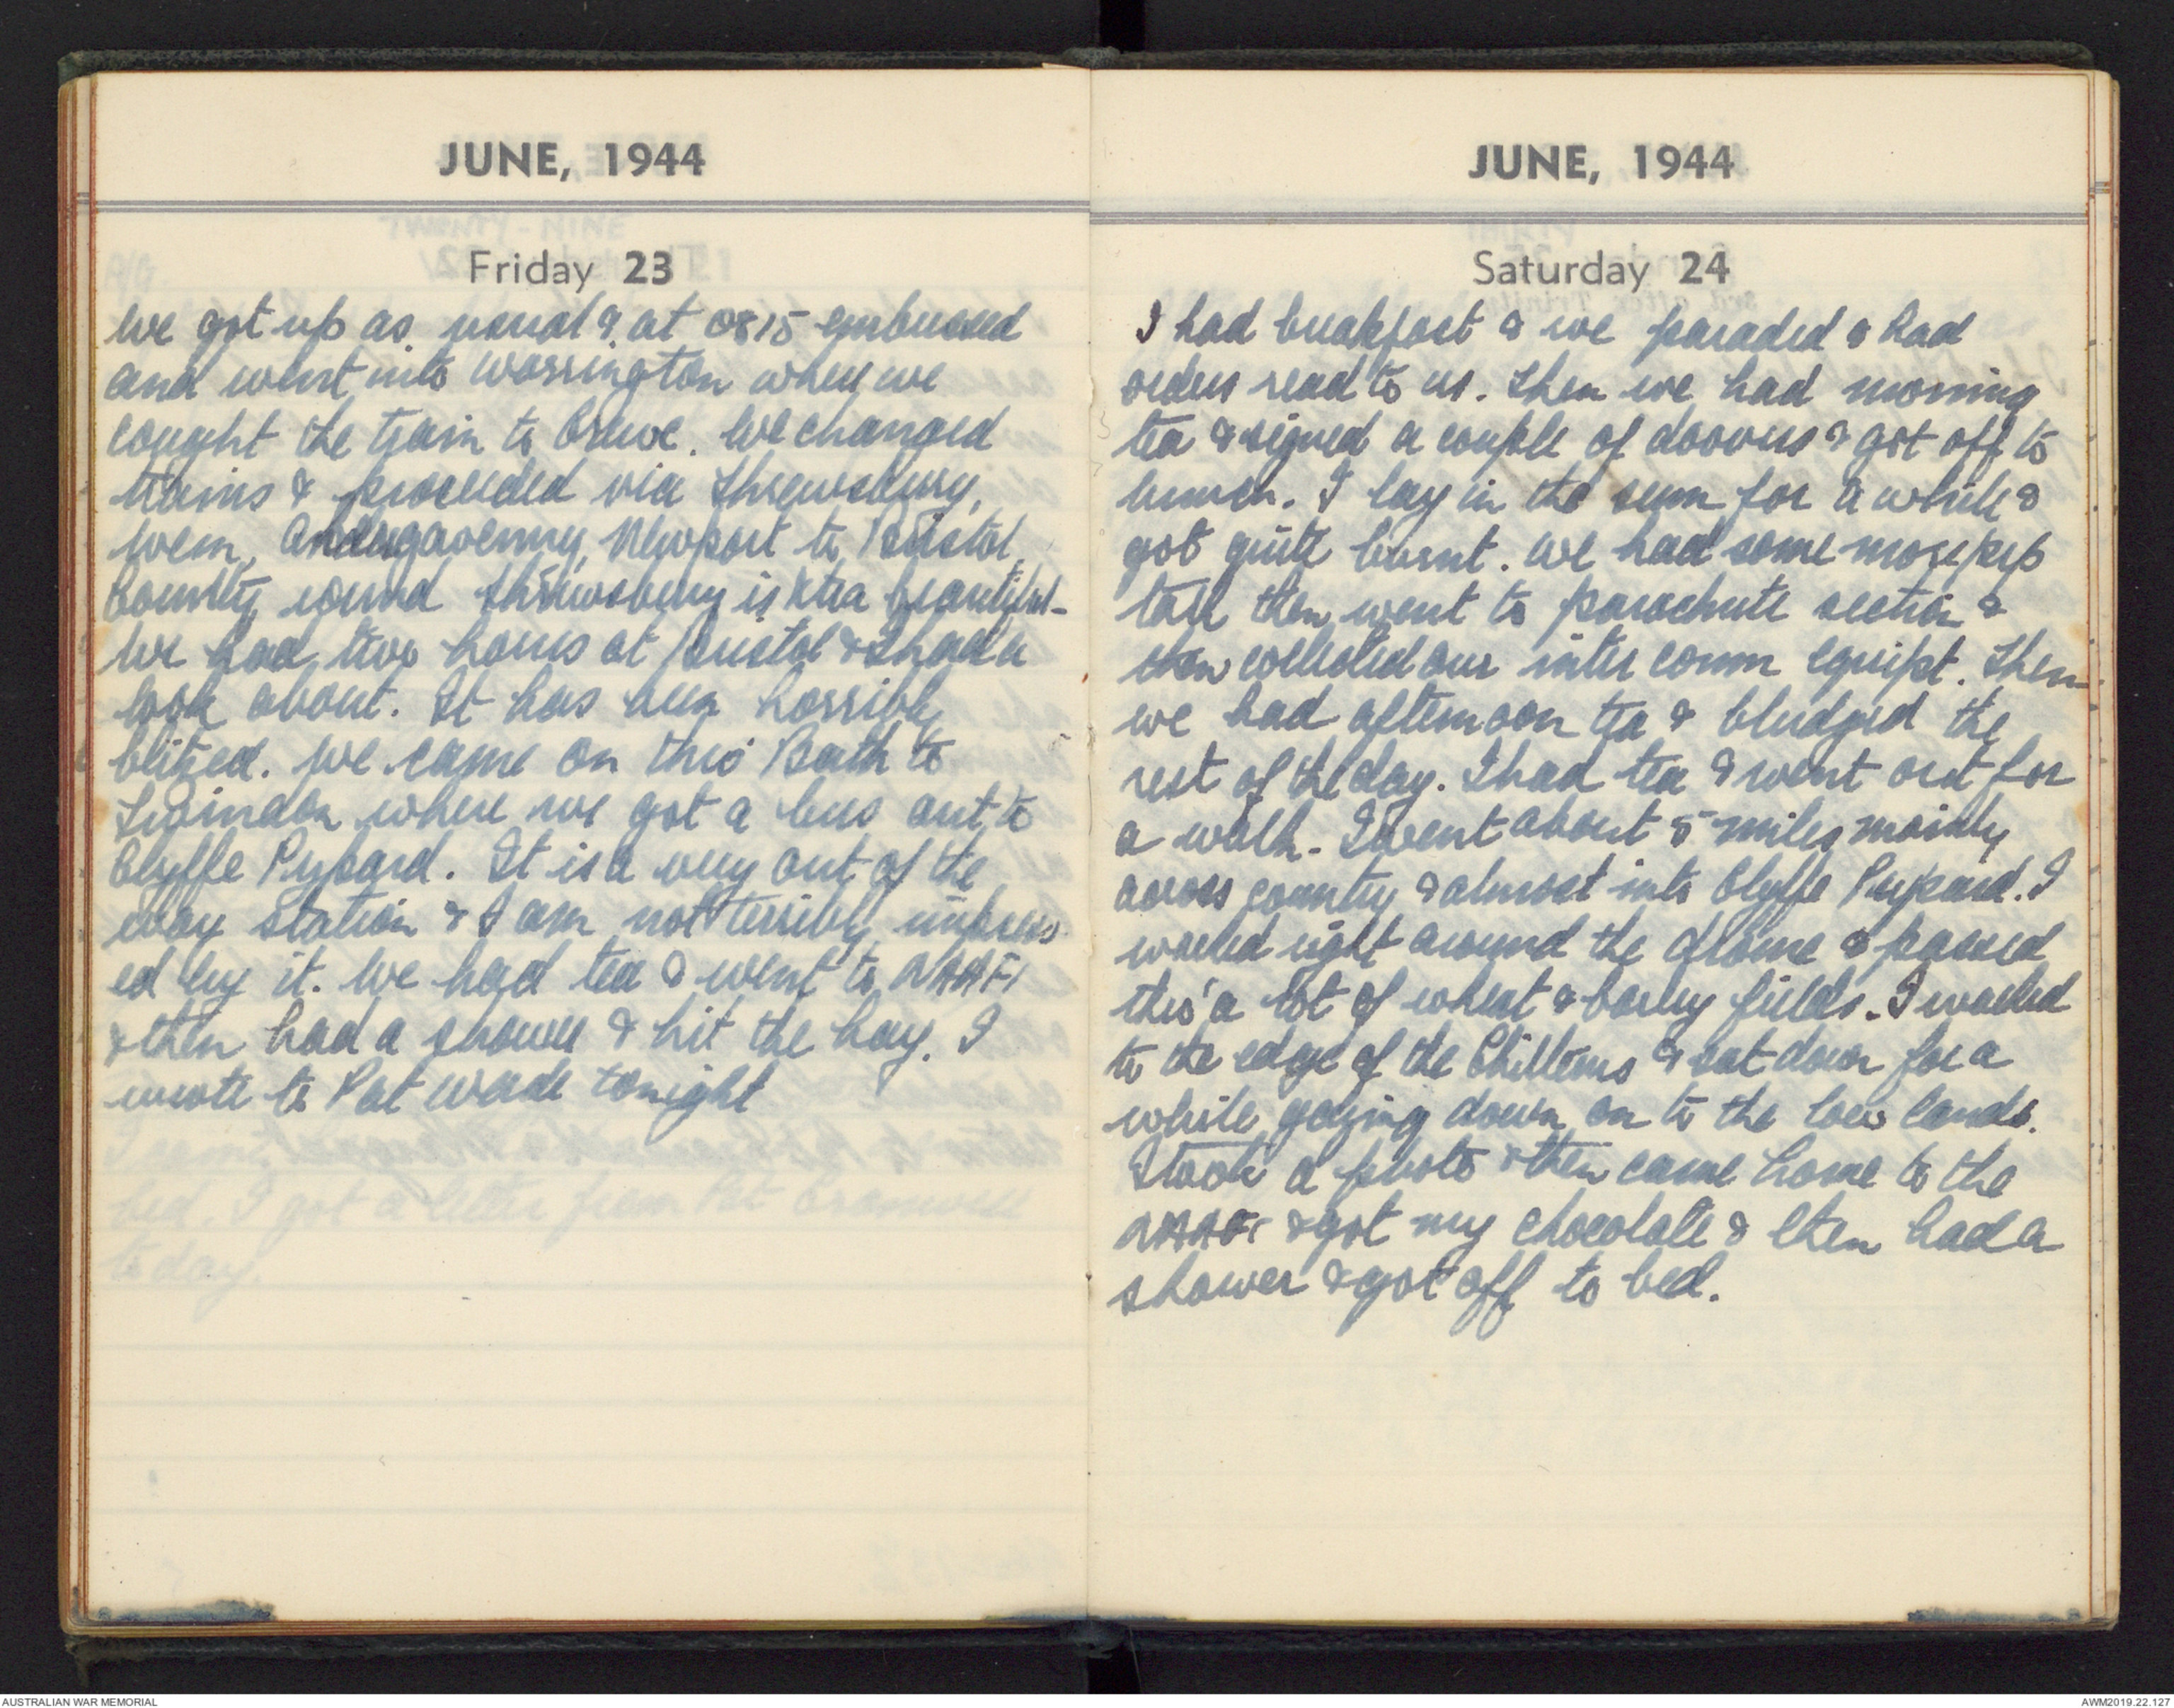 JUNE, 1944
Friday 23
We got up as usual & at 0815 embussed
and went into Warrington where we
caught the train to Crewe. We changed
trains & proceeded via Shrewsbury,
Wem, Abergavenny, Newport to Bristol.
Country round Shrewsbury is xtra beautiful-
We had two hours at Bristol & I had a
look about. It has been horribly
blitzed. We came on thro' Bath to
Swindon where we got a bus out to
Clyffe Pypard. It is a very out of the
way station & I am not terribly impress
ed by it. We had tea & went to NAAFI
& then had a shower & hit the hay. I
wrote to Pat Wade tonight
JUNE, 1944
Saturday 24
I had breakfast & we paraded & had
orders read to us. Then we had morning
tea & signed a couple of doovers & got off to
lunch. I lay in the sun for a while &
got quite burnt. We had some more pep
talk then went to parachute section &
then collected our inter comm equipt. Then
we had afternoon tea & bludged the
rest of the day. I had tea & went out for
a walk. I went about 5 miles mainly
across country & almost into Clyffe Pypard. I
walked right around the drome & passed
thro' a lot of wheat & barley fields. I walked
to the edge of the Chilterns & sat down for a
while gazing down on to the low lands.
I took a photo & then came home to the
NAAFI & got my chocolate & then had a
shower & got off to bed.
AUSTRALIAN WAR MEMORIAL
AWM2019.22.127